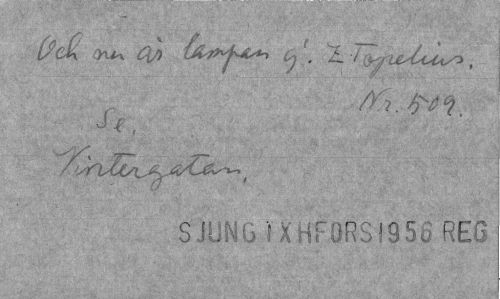 Och nu är lampan g'. Z Topelius.
Nr. 509.
Se,
Vintergatan.
SJUNG IXHFORS1956 REG